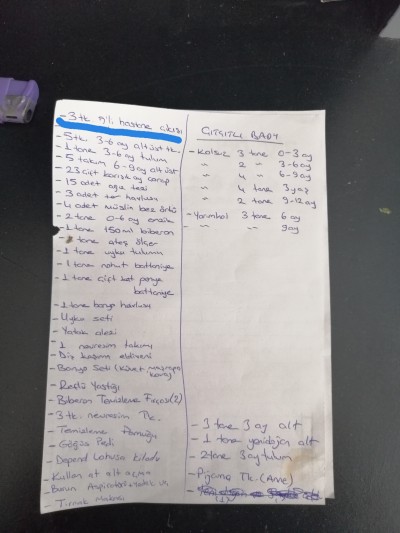 - 3 tk 5'li hastane çıkışı
- 5 tk. 3-6 ay alt üst tk.
- 1 tane 3-6 ay tulum
- 5 takım 6-9 ay alt üst
- 23 çift karışık ay çorap
- 15 adet ağız bezi
- 3 adet ter havlusu
- 4 adet müslin bez örtü
- 2 tane 0-6 ay emzik
- 1 tane 150 ml biberon
- 1 tane ateş ölçer
- 1 tane uyku tulumu
- 1 tane nohut battaniye
- 1 tane çift kat penye
battaniye
- 1 tane banyo havlusu
- Uyku seti
- Yatak alezi
- 1 nevresim takımı
- Diş kaşıma eldiveni
- Banyo Seti (Küvet
- Reflü Yastığı
- Biberon Temizleme Fırçası (2)
- 3 tk. nevresim Tk.
- Temizleme Pamuğu
- Göğüs Pedi
- Depend Lohusa Külodu
- Kullan at alt açma
- Burun Aspiratörü
- Tırnak Makası
ÇITÇITLI BADY
- Kolsuz 3 tane 0-3 ay
" 2 " 3-6 ay
" 4 " 6-9 ay
" 4 tane 3 yaş
" 2 tane 9-12 ay
- Yarımkol 3 tane 6 ay
- " " 9 ay
- 3 tane 3 ay alt
- 1 tane yenidoğan alt
- 2 tane 3 ay tulum
- Pijama Tk. (Anne)